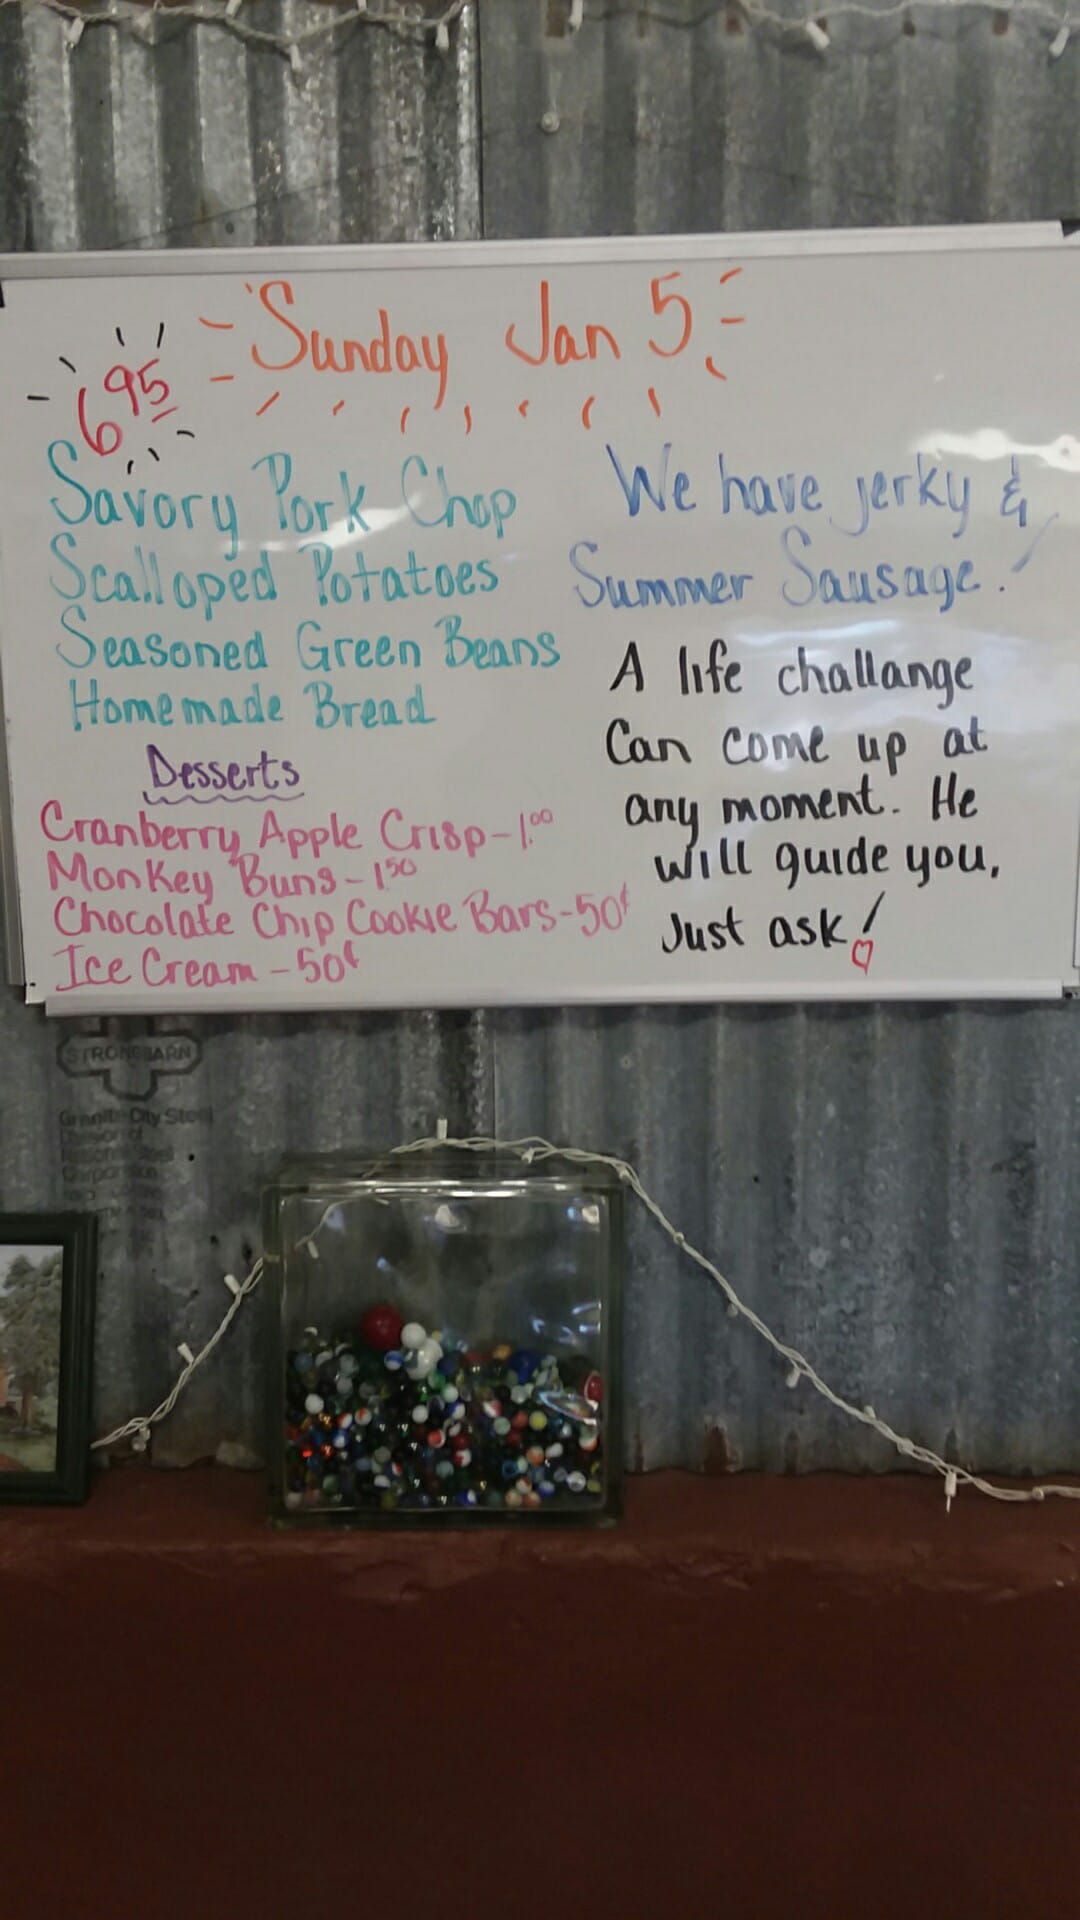 Sunday Jan 5
6 95
Savory Pork Chop
Scalloped Potatoes
Seasoned Green Beans
Homemade Bread
Desserts
Cranberry Apple Crisp - 1.00
Monkey Buns - 1 50
Chocolate Chip Cookie Bars - 50¢
Ice Cream - 50¢
We have jerky &
Summer Sausage!
A life challange
Can come up at
any moment. He
will guide you,
Just ask!
STRONGBARN
Granite City Steel
Division of
National Steel
Corporation